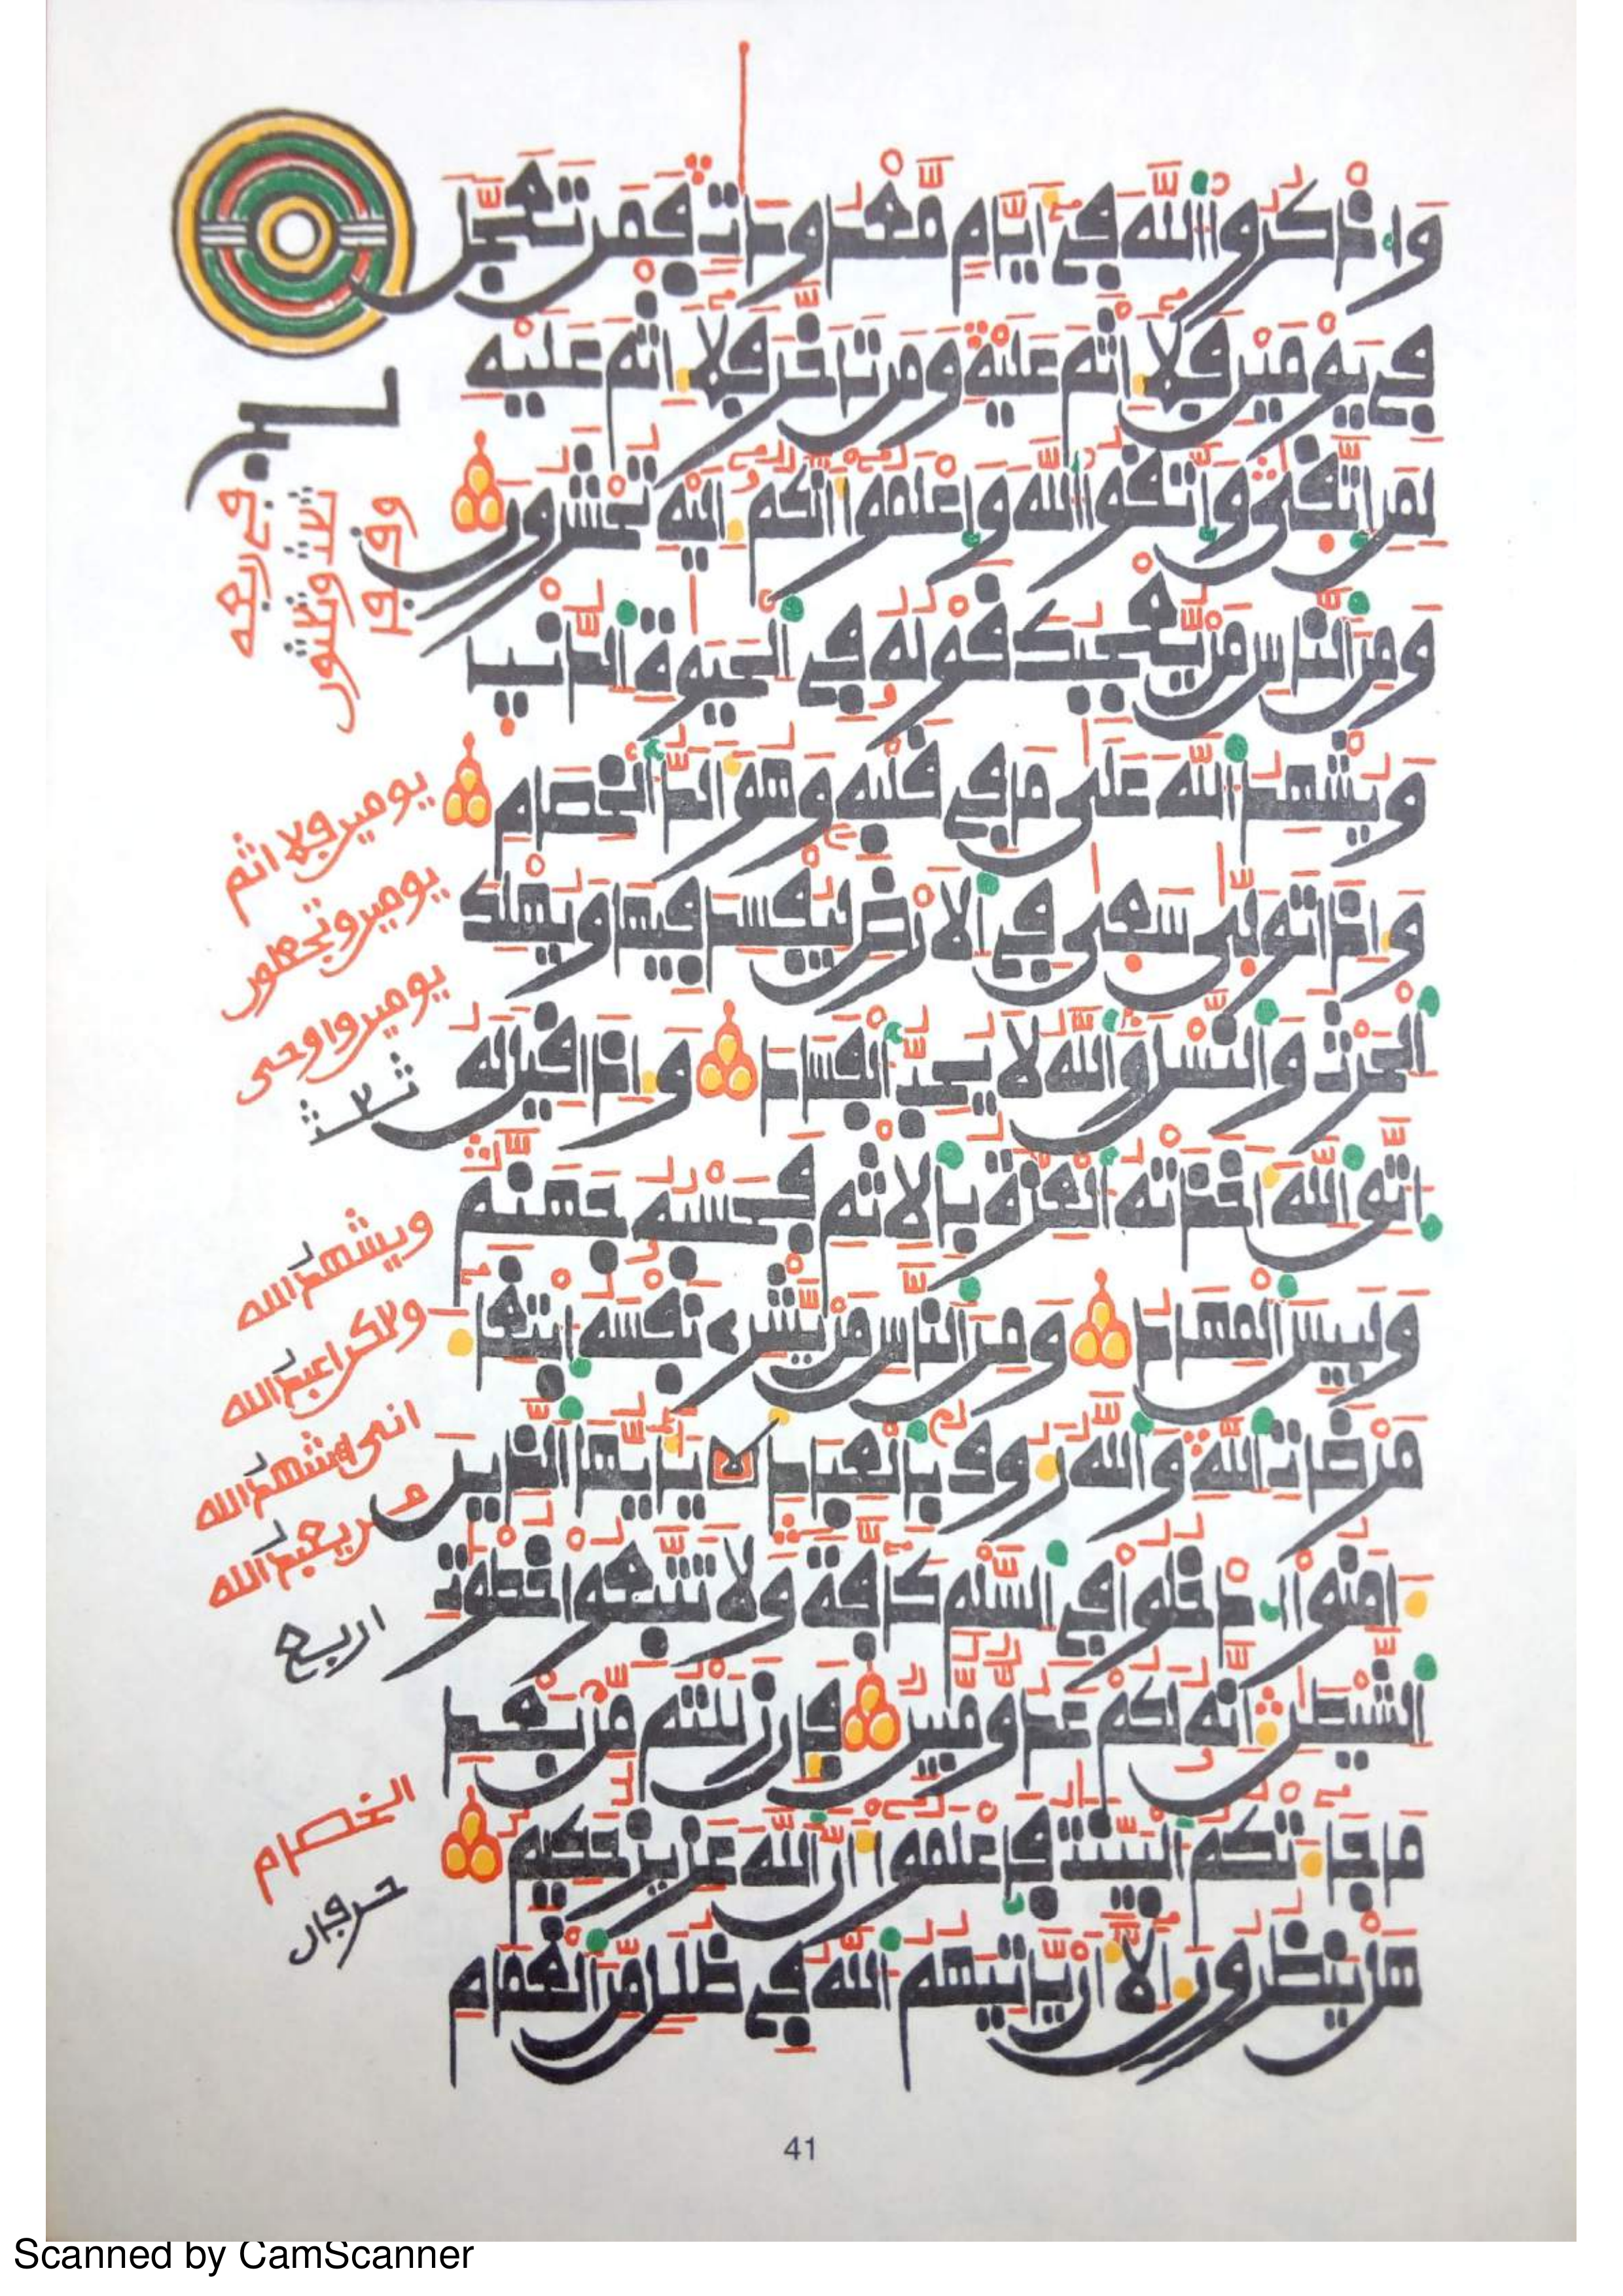 وَاذْكُرُوا اللَّهَ فِي أَيَّامٍ مَّعْدُودَاتٍ فَمَن تَعَجَّلَ
فِي يَوْمَيْنِ فَلَا إِثْمَ عَلَيْهِ وَمَن تَأَخَّرَ فَلَا إِثْمَ عَلَيْهِ
لِمَنِ اتَّقَىٰ وَاتَّقُوا اللَّهَ وَاعْلَمُوا أَنَّكُمْ إِلَيْهِ تُحْشَرُونَ
وَمِنَ النَّاسِ مَن يُعْجِبُكَ قَوْلُهُ فِي الْحَيَوٰةِ الدُّنْيَا
وَيُشْهِدُ اللَّهَ عَلَىٰ مَا فِي قَلْبِهِ وَهُوَ أَلَدُّ الْخِصَامِ
وَإِذَا تَوَلَّىٰ سَعَىٰ فِي الْأَرْضِ لِيُفْسِدَ فِيهَا وَيُهْلِكَ
الْحَرْثَ وَالنَّسْلَ وَاللَّهُ لَا يُحِبُّ الْفَسَادَ وَإِذَا قِيلَ لَهُ
اتَّقِ اللَّهَ أَخَذَتْهُ الْعِزَّةُ بِالْإِثْمِ فَحَسْبُهُ جَهَنَّمُ
وَلَبِيسَ الْمِهَادُ وَمِنَ النَّاسِ مَن يَشْرِي نَفْسَهُ ابْتِغَاءَ
مَرْضَاتِ اللَّهِ وَاللَّهُ رَءُوفٌ بِالْعِبَادِ يَا أَيُّهَا الَّذِينَ
ءَامَنُوا ادْخُلُوا فِي السَّلْمِ كَافَّةً وَلَا تَتَّبِعُوا خُطْوَٰتِ
الشَّيْطَٰنِ إِنَّهُ لَكُمْ عَدُوٌّ مُّبِينٌ فَإِن زَلَلْتُم مِّن بَعْدِ
مَا جَاءَتْكُمُ الْبَيِّنَٰتُ فَاعْلَمُوا أَنَّ اللَّهَ عَزِيزٌ حَكِيمٌ
هَلْ يَنظُرُونَ إِلَّا أَن يَأْتِيَهُمُ اللَّهُ فِي ظُلَلٍ مِّنَ الْغَمَامِ
يومين فلا اثم
يومين وتجعلون
يومين واوحى
ثلث
ويشهد الله
ولاكن اعبد الله
انى اشهد الله
من يعبد الله
اربع
الخصام
حرفان
41
Scanned by CamScanner